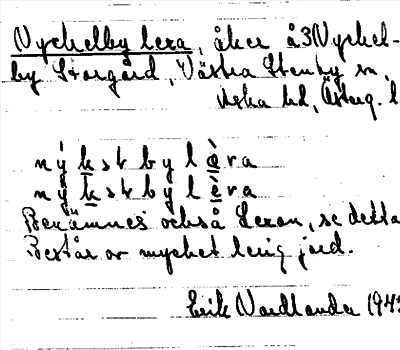 Nyckelby lera, åker å 3 Nyckel-
by Storgård, Västra Stenby sn,
Aska hd, Österg. l
n ý k s t b y l è r a
n ý k s t b y l è r a
Benämnes också Leran, se detta
Består av mycket lerig jord.
Erik Nordlander 194